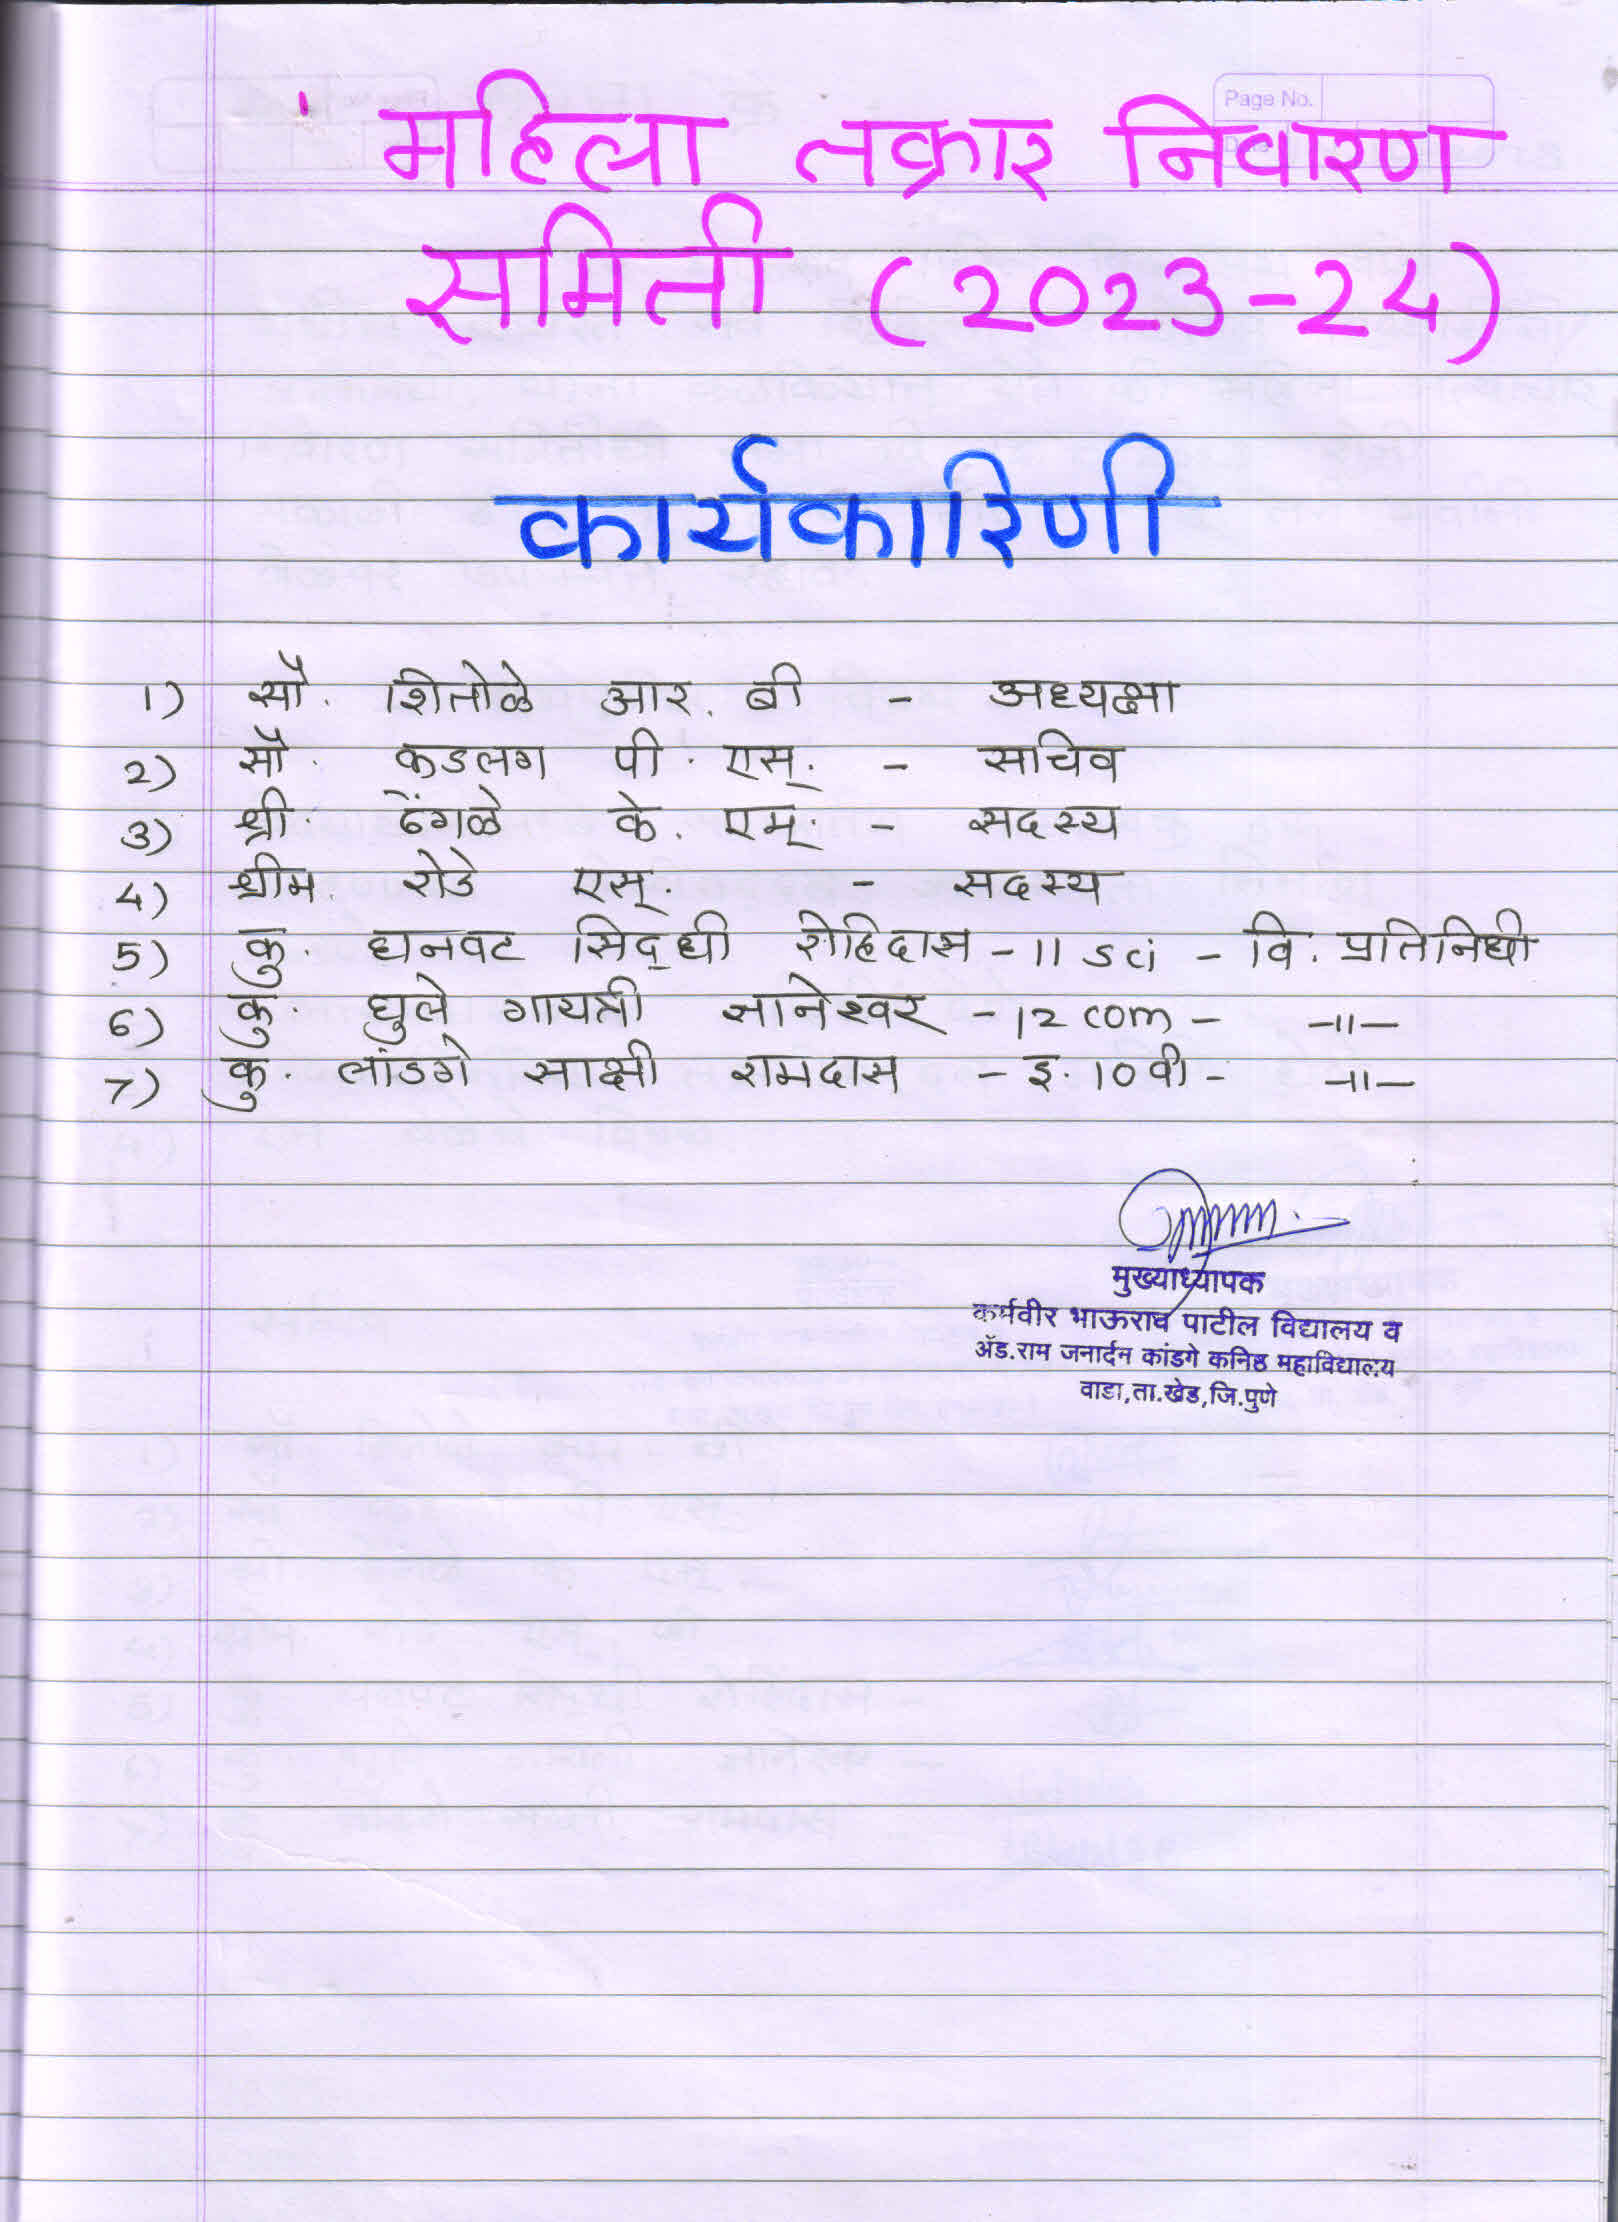 Page No.
महिला तक्रार निवारण
समिती (2023-24)
कार्यकारिणी
1) सौ. शितोळे आर. बी - अध्यक्षा
2) सौ. कडलग पी. एस्. - सचिव
3) श्री. ढेंगळे के. एम्. - सदस्य
4) श्रीम. रोडे एस्. - सदस्य
5) कु. धनवट सिद्धी रोहिदास - 11 sci - वि. प्रतिनिधी
6) कु. धुले गायत्री ज्ञानेश्वर - 12 com - -11-
7) कु. लांडगे साक्षी रामदास - इ. 10 वी - -11-
मुख्याध्यापक
कर्मवीर भाऊराव पाटील विद्यालय व
ॲड.राम जनार्दन कांडगे कनिष्ठ महाविद्यालय
वाडा,ता.खेड,जि.पुणे